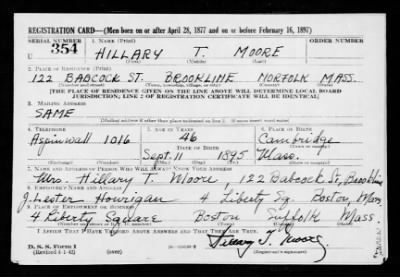 REGISTRATION CARD—(Men born on or after April 28, 1877 and on or before February 16, 1897)
SERIAL NUMBER 1. NAME (Print) ORDER NUMBER
U 354 HILLARY T. MOORE
(First) (Middle) (Last)
2. PLACE OF RESIDENCE (Print)
122 BABCOCK ST. BROOKLINE NORFOLK MASS.
(Number and street) (Town, township, village, or city) (County) (State)
[THE PLACE OF RESIDENCE GIVEN ON THE LINE ABOVE WILL DETERMINE LOCAL BOARD
JURISDICTION; LINE 2 OF REGISTRATION CERTIFICATE WILL BE IDENTICAL]
3. MAILING ADDRESS
SAME
[Mailing address if other than place indicated on line 2. If same insert word same]
4. TELEPHONE 5. AGE IN YEARS 6. PLACE OF BIRTH
Aspinwall 1016 46 Cambridge
DATE OF BIRTH (Town or county)
Sept. 11 1895 Mass.
(Mo.) (Day) (Yr.) (State or country)
7. NAME AND ADDRESS OF PERSON WHO WILL ALWAYS KNOW YOUR ADDRESS
Mrs. Hillary T. Moore, 122 Babcock St, Brookline
8. EMPLOYER'S NAME AND ADDRESS
J. Lester Hourigan 4 Liberty Sq. Boston, Mass
9. PLACE OF EMPLOYMENT OR BUSINESS
4 Liberty Square Boston Suffolk Mass.
(Number and street or R. F. D. number) (Town) (County) (State)
I AFFIRM THAT I HAVE VERIFIED ABOVE ANSWERS AND THAT THEY ARE TRUE.
D. S. S. Form 1
(Revised 4-1-42) (over)
Hillary T. Moore
(Registrant's signature)